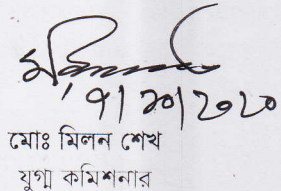 ৭/১০/২০২০
মোঃ মিলন শেখ
যুগ্ম কমিশনার